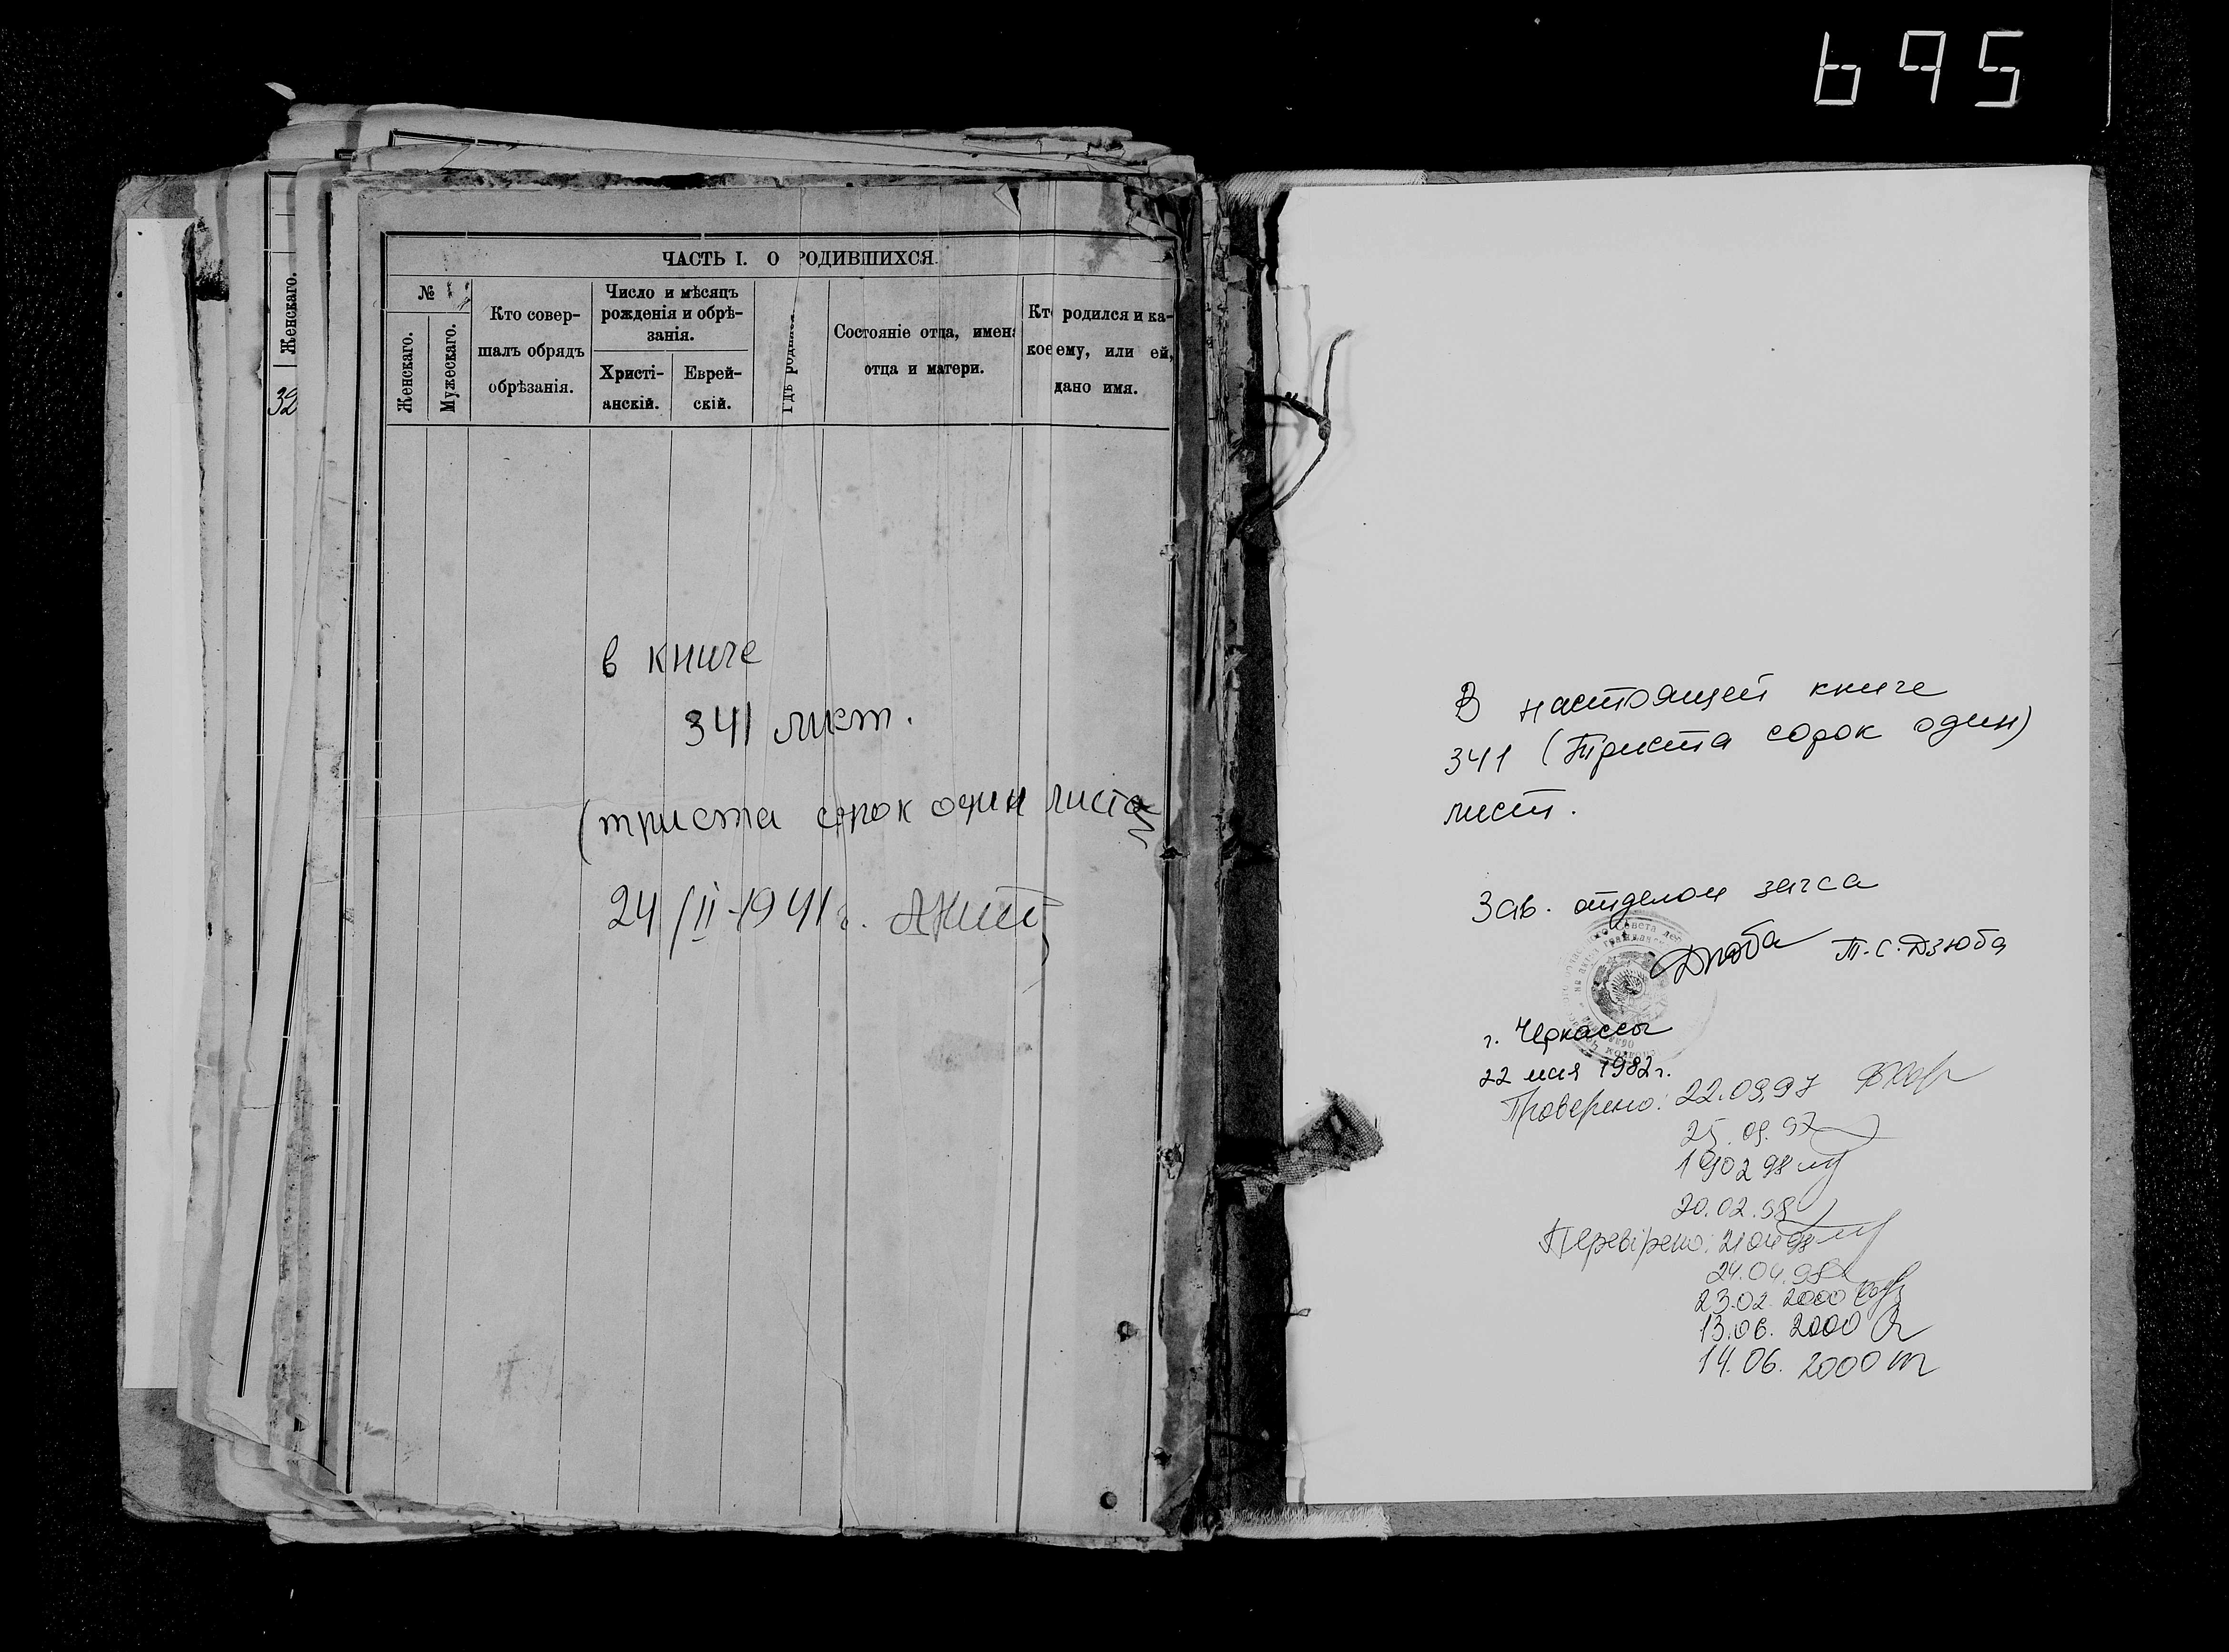 695
Женскаго.
32
ЧАСТЬ I. О РОДИВШИХСЯ.
№
Женскаго.
Мужескаго.
Кто совер-
шалъ обрядъ
обрѣзанія.
Число и мѣсяцъ
рожденія и обрѣ-
занія.
Христі-
анскій.
Еврей-
скій.
Гдѣ родился
Состояніе отца, имена
отца и матери.
Кто родился и ка-
кое ему, или ей,
дано имя.
в книге
341 лист.
(триста сорок один листа
24/II-1941 г.
В настоящей книге
341 (триста сорок один)
лист.
Зав. отделом загса
Т. С. Дзюба
г. Черкассы
22 мая 1982 г.
Проверено: 22.09.97
25.09.97
19 02 98
20.02.98
Перевірено: 21 04 98
24.04.98
23.02.2000
13.06.2000
14.06.2000